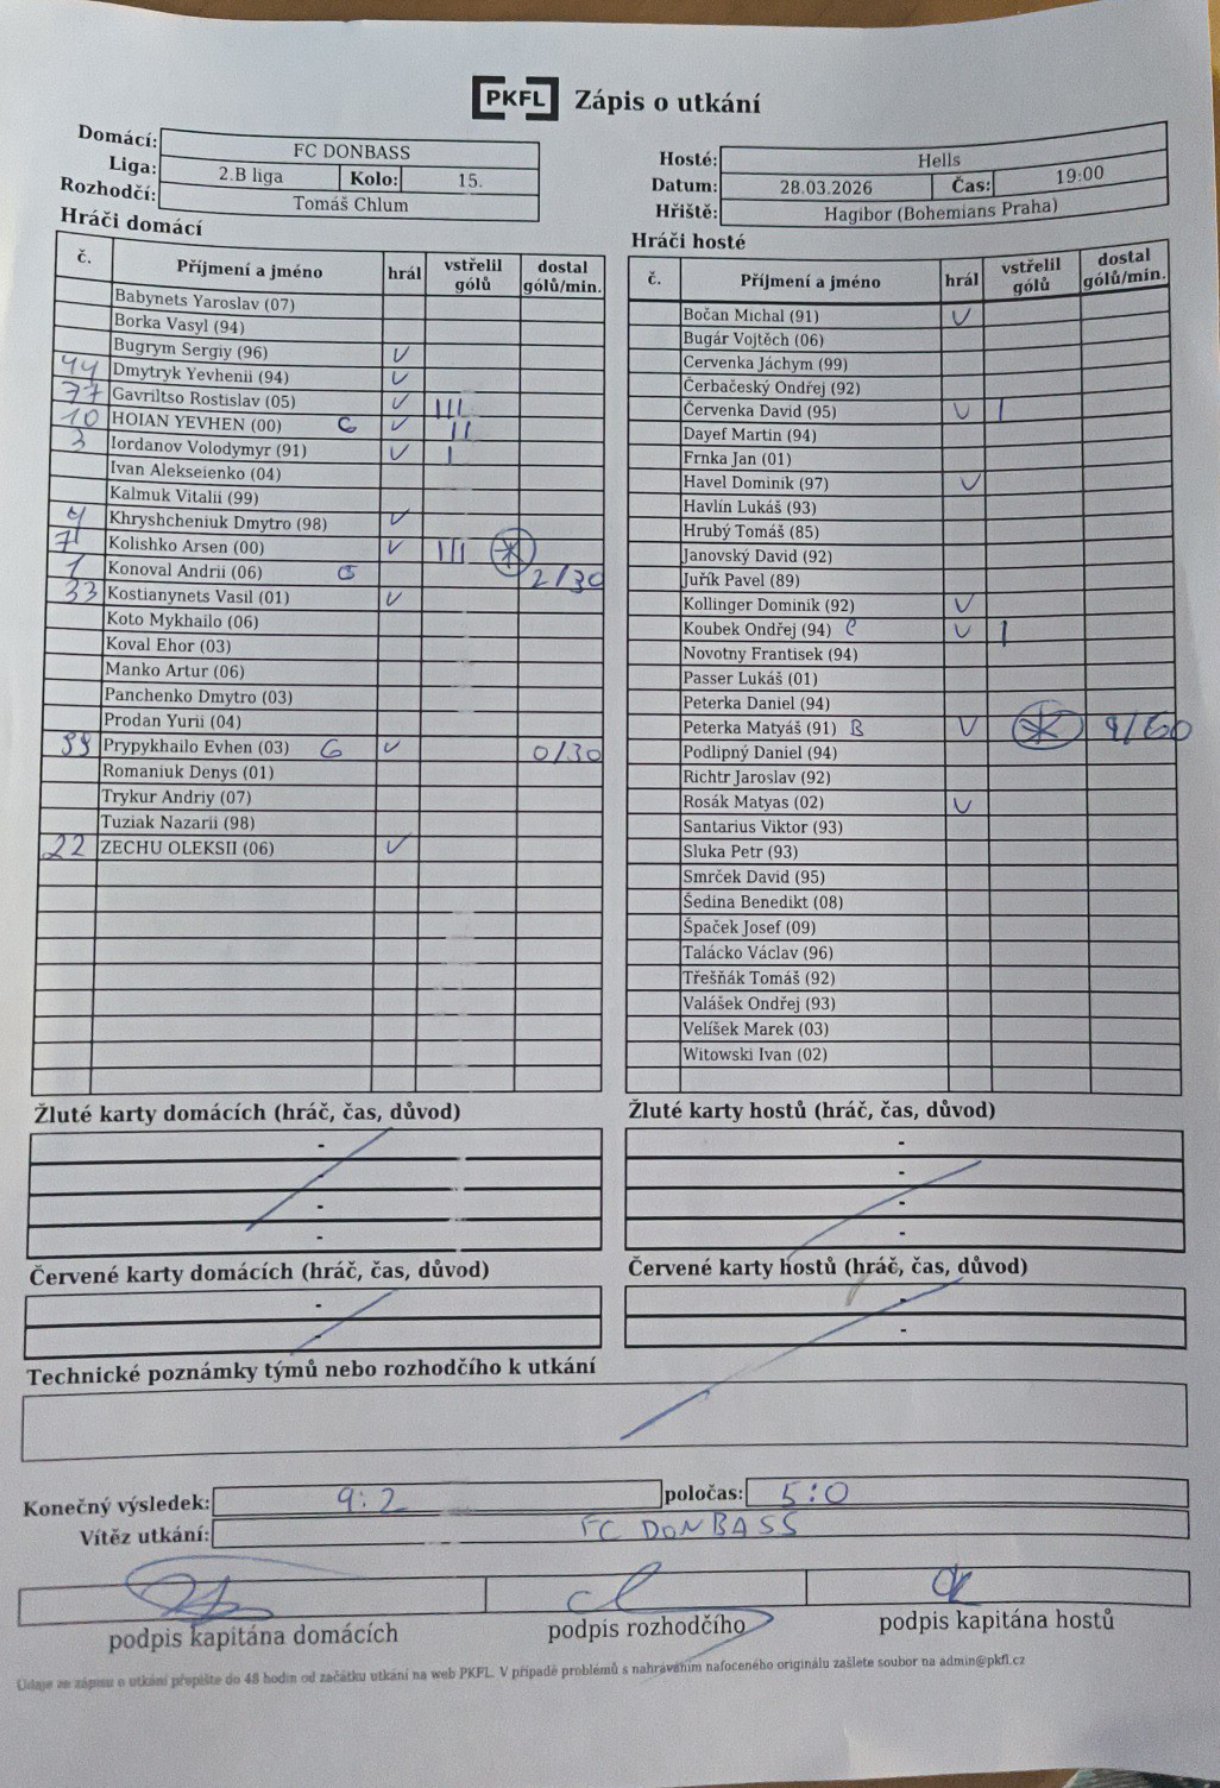 PKFL Zápis o utkání
Domácí: FC DONBASS
Liga: 2.B liga Kolo: 15.
Rozhodčí: Tomáš Chlum
Hosté: Hells
Datum: 28.03.2026 Čas: 19:00
Hřiště: Hagibor (Bohemians Praha)
Hráči domácí
č. Příjmení a jméno hrál vstřelil gólů dostal gólů/min.
Babynets Yaroslav (07)
Borka Vasyl (94)
Bugrym Sergiy (96) V
44 Dmytryk Yevhenii (94) V
77 Gavriltso Rostislav (05) V III
10 HOIAN YEVHEN (00) C V II
3 Iordanov Volodymyr (91) V I
Ivan Alekseienko (04)
Kalmuk Vitalii (99)
Khryshcheniuk Dmytro (98) V
Kolishko Arsen (00) V III
1 Konoval Andrii (06) 2/30
33 Kostianynets Vasil (01) V
Koto Mykhailo (06)
Koval Ehor (03)
Manko Artur (06)
Panchenko Dmytro (03)
Prodan Yurii (04)
99 Prypykhailo Evhen (03) G V 0/30
Romaniuk Denys (01)
Trykur Andriy (07)
Tuziak Nazarii (98)
22 ZECHU OLEKSII (06) V
Hráči hosté
č. Příjmení a jméno hrál vstřelil gólů dostal gólů/min.
Bočan Michal (91) V
Bugár Vojtěch (06)
Cervenka Jáchym (99)
Čerbačeský Ondřej (92)
Červenka David (95) V I
Dayef Martin (94)
Frnka Jan (01)
Havel Dominik (97) V
Havlín Lukáš (93)
Hrubý Tomáš (85)
Janovský David (92)
Juřík Pavel (89)
Kollinger Dominik (92) V
Koubek Ondřej (94) C V I
Novotny Frantisek (94)
Passer Lukáš (01)
Peterka Daniel (94)
Peterka Matyáš (91) B V 9/60
Podlipný Daniel (94)
Richtr Jaroslav (92)
Rosák Matyas (02) V
Santarius Viktor (93)
Sluka Petr (93)
Smrček David (95)
Šedina Benedikt (08)
Špaček Josef (09)
Talácko Václav (96)
Třešňák Tomáš (92)
Valášek Ondřej (93)
Velíšek Marek (03)
Witowski Ivan (02)
Žluté karty domácích (hráč, čas, důvod)
-
-
-
-
Žluté karty hostů (hráč, čas, důvod)
-
-
-
-
Červené karty domácích (hráč, čas, důvod)
-
-
Červené karty hostů (hráč, čas, důvod)
-
-
Technické poznámky týmů nebo rozhodčího k utkání
Konečný výsledek: 9:2 poločas: 5:0
Vítěz utkání: FC DONBASS
podpis kapitána domácích podpis rozhodčího podpis kapitána hostů
Údaje ze zápisu o utkání přepište do 48 hodin od začátku utkání na web PKFL. V případě problémů s nahráváním nafoceného originálu zašlete soubor na admin@pkfl.cz